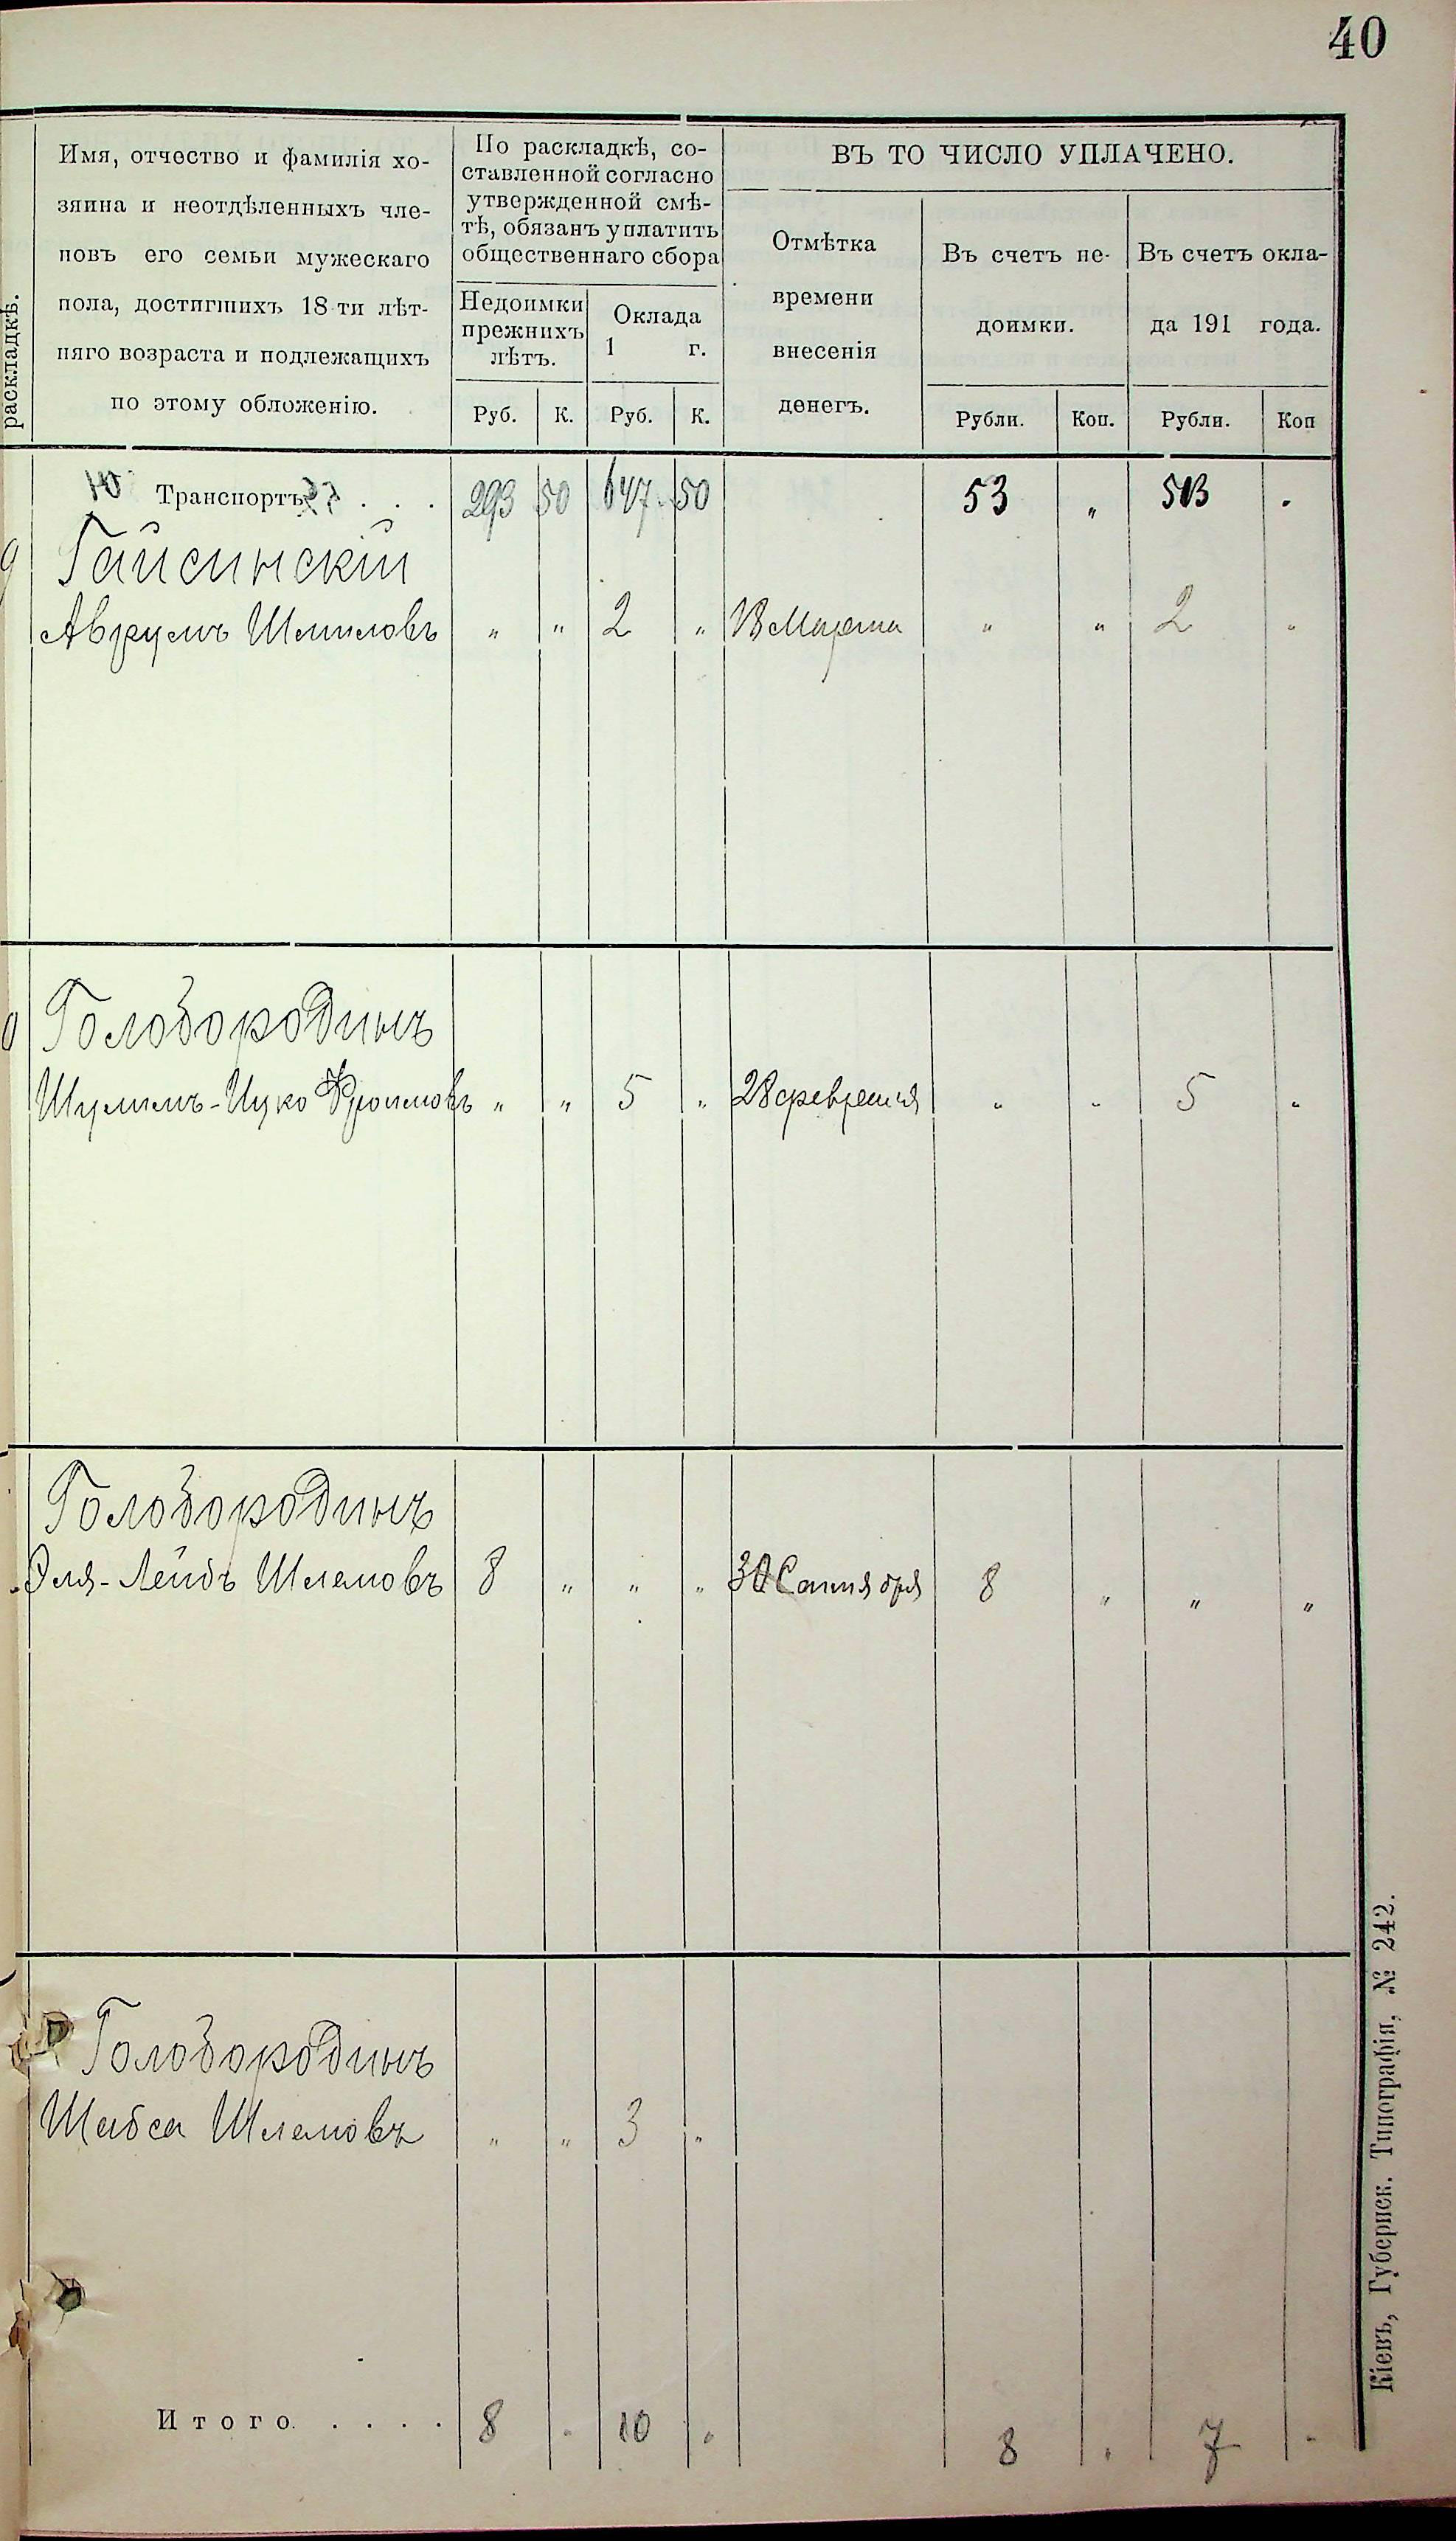 40
раскладкѣ.
Имя, отчество и фамилія хо-
зяина и неотдѣленныхъ чле-
новъ его семьи мужескаго
пола, достигшихъ 18-ти лѣт-
няго возраста и подлежащихъ
по этому обложенію.
По раскладкѣ, со-
ставленной согласно
утвержденной смѣ-
тѣ, обязанъ уплатить
общественнаго сбора
Недоимки
прежнихъ
лѣтъ.
Оклада
1 г.
Руб. К. Руб. К.
ВЪ ТО ЧИСЛО УПЛАЧЕНО.
Отмѣтка
времени
внесенія
денегъ.
Въ счетъ не-
доимки.
Въ счетъ окла-
да 191 года.
Рубли. Коп. Рубли. Коп
Транспортъ . . . 293 50 647 50 53 „ 513 .
9 Гайсинскій
Аврумъ Шмиловъ „ „ 2 „ 13 Марта „ „ 2 „
0 Голобородинъ
Шулимъ-Ицко Фроимовъ „ „ 5 „ 28 февраля „ „ 5 „
Голобородинъ
Эля-Лейбъ Шлемовъ 8 „ „ „ 30 Сентября 8 „ „ „
Голобородинъ
Шабса Шлемовъ „ „ 3 „
Итого. . . . . 8 „ 10 „ 8 . 7 .
Кіевъ, Губернск. Типографія, № 242.